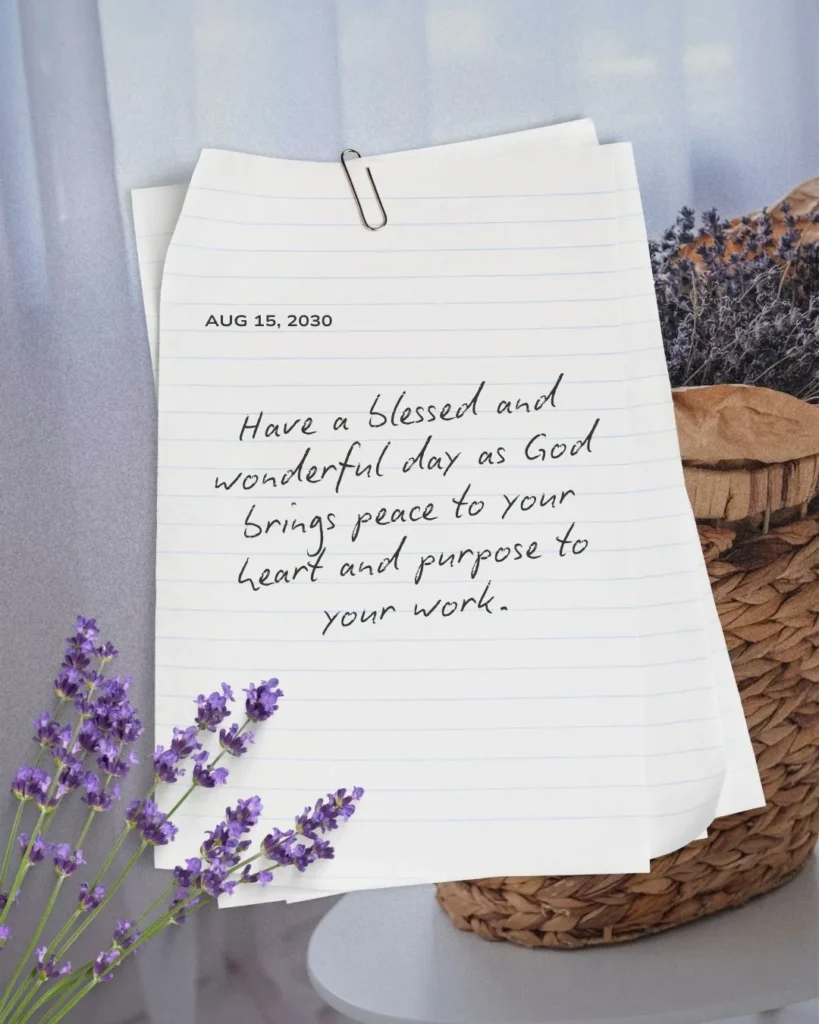 AUG 15, 2030
Have a blessed and
wonderful day as God
brings peace to your
heart and purpose to
your work.